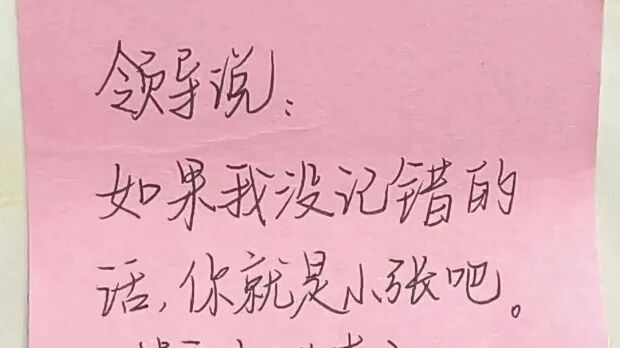 领导说：
如果我没记错的
话，你就是小张吧。